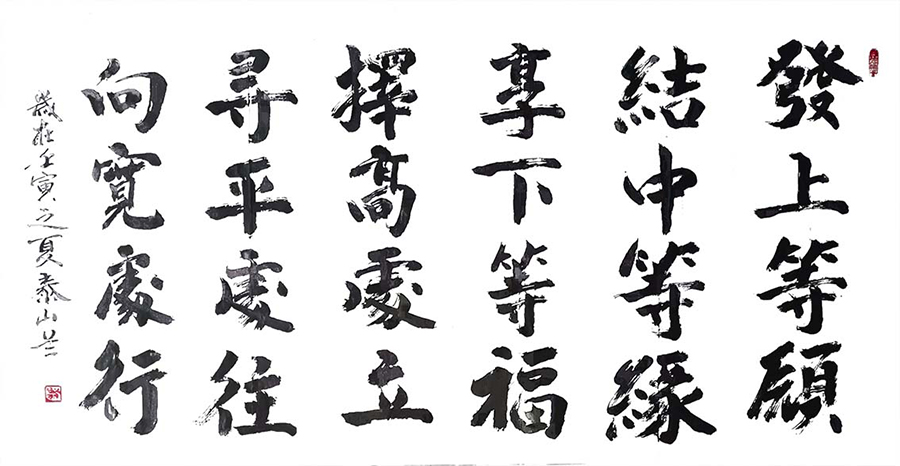 發上等願
結中等緣
享下等福
擇高處立
尋平處住
向寬處行
歲在壬寅之夏泰山